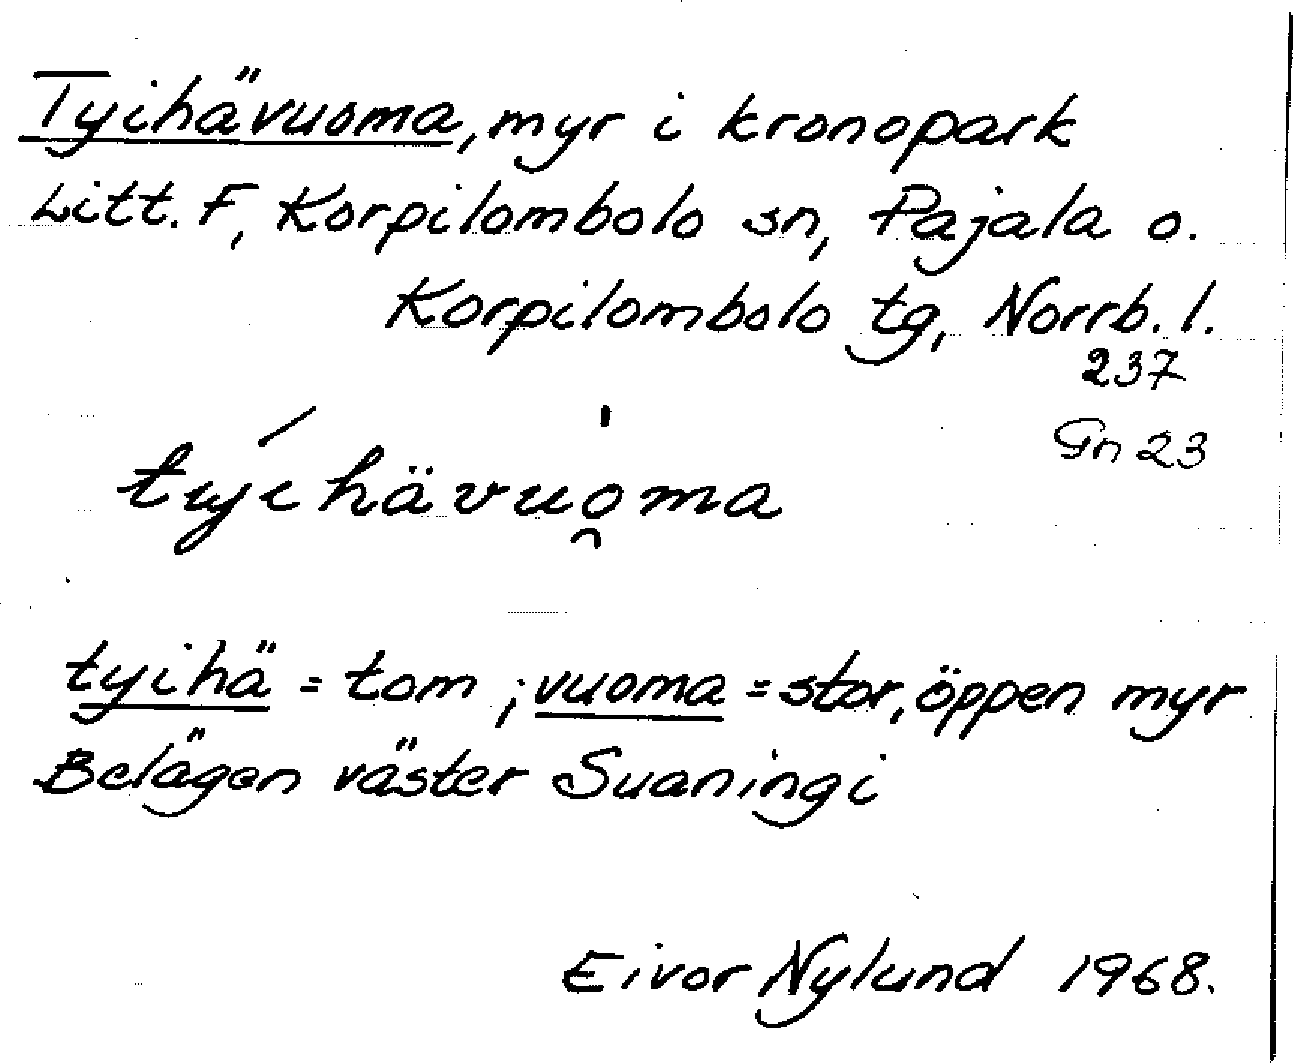 Tyihävuoma, myr i kronopark
Litt. F, Korpilombolo sn, Pajala o.
Korpilombolo tg, Norrb. l.
237
Gn 23
tyí hävuo̯ma
tyihä = tom ; vuoma = stor, öppen myr
Belägen väster Suaningi
Eivor Nylund 1968.